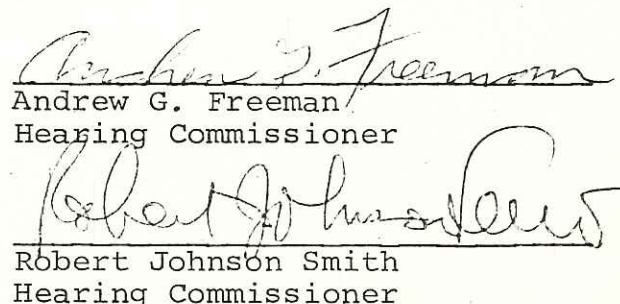 Andrew G. Freeman
Andrew G. Freeman
Hearing Commissioner
Robert Johnson Smith
Robert Johnson Smith
Hearing Commissioner